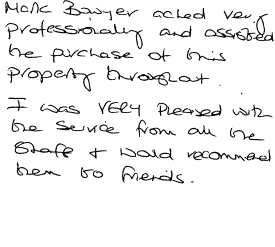 Mark Bawyer acted very
professionally and assisted
the purchase of this
property throughout.
I was VERY Pleased with
the service from all the
Staff + would recommend
them to friends.